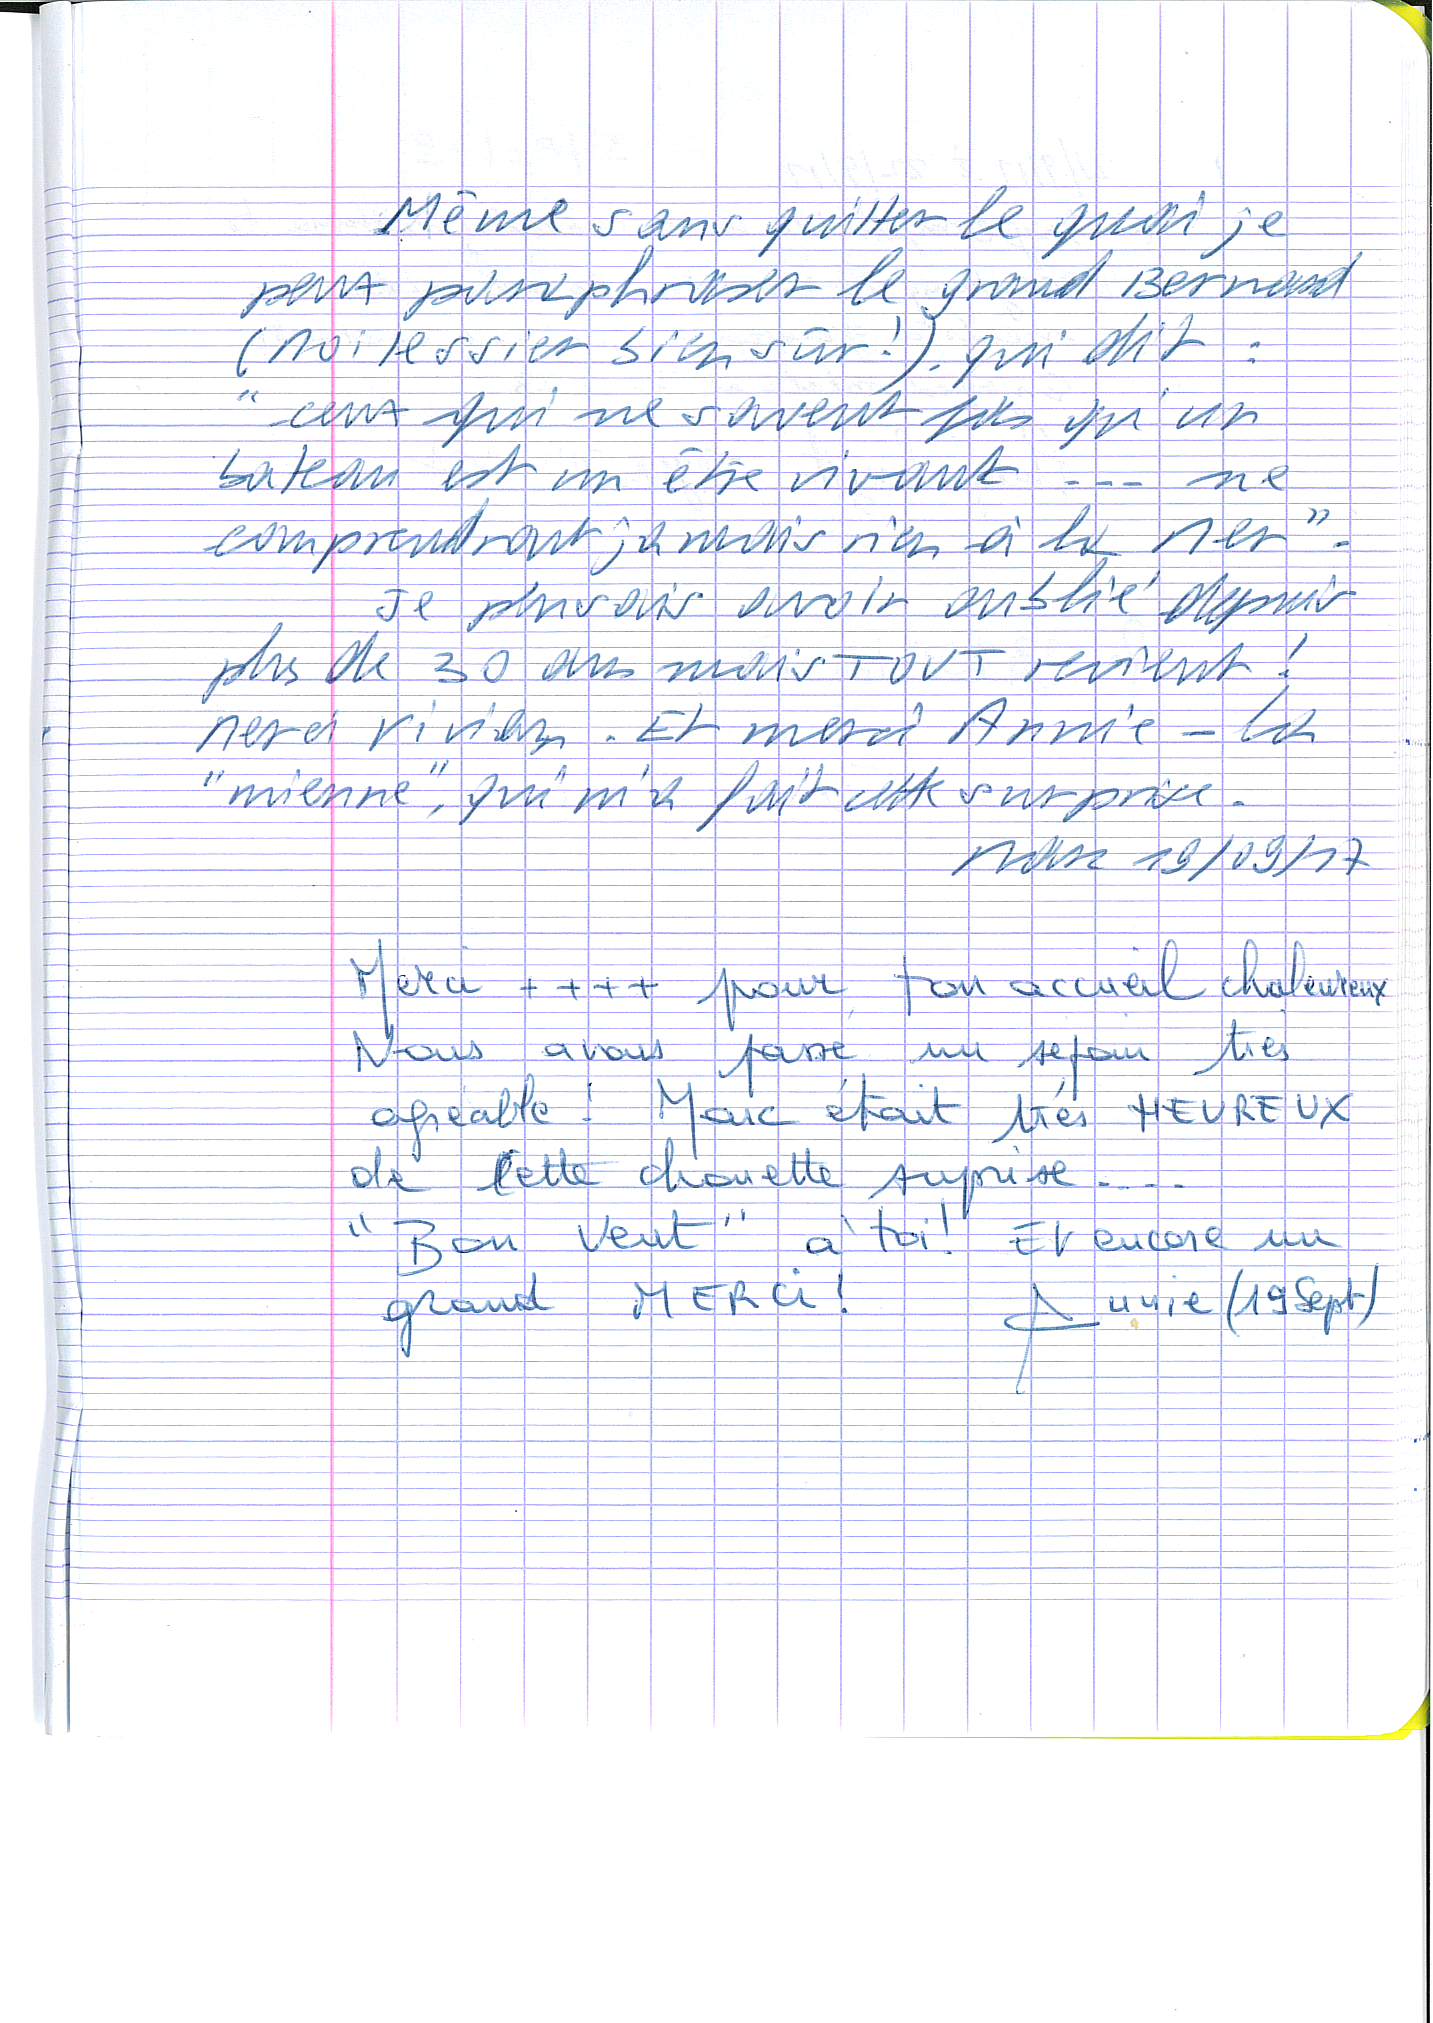 Même sans quitter le quai je
peux paraphraser le grand Bernard
(Moitessier bien sûr!). qui dit :
"ceux qui ne savent pas qu'un
bateau est un être vivant --- ne
comprendront jamais rien à la Mer".
Je pensais avoir oublié depuis
plus de 30 ans mais TOUT revient !
Merci Vivian. Et merci Annie - la
"mienne", qui m'a fait cette surprise.
Marc 19/09/17
Merci ++++ pour ton accueil chaleureux
Nous avons passé un séjour très
agréable ! Marc était très HEUREUX
de cette chouette suprise....
"Bon Vent" à toi! Et encore un
grand MERCi ! Annie (19 Sept)